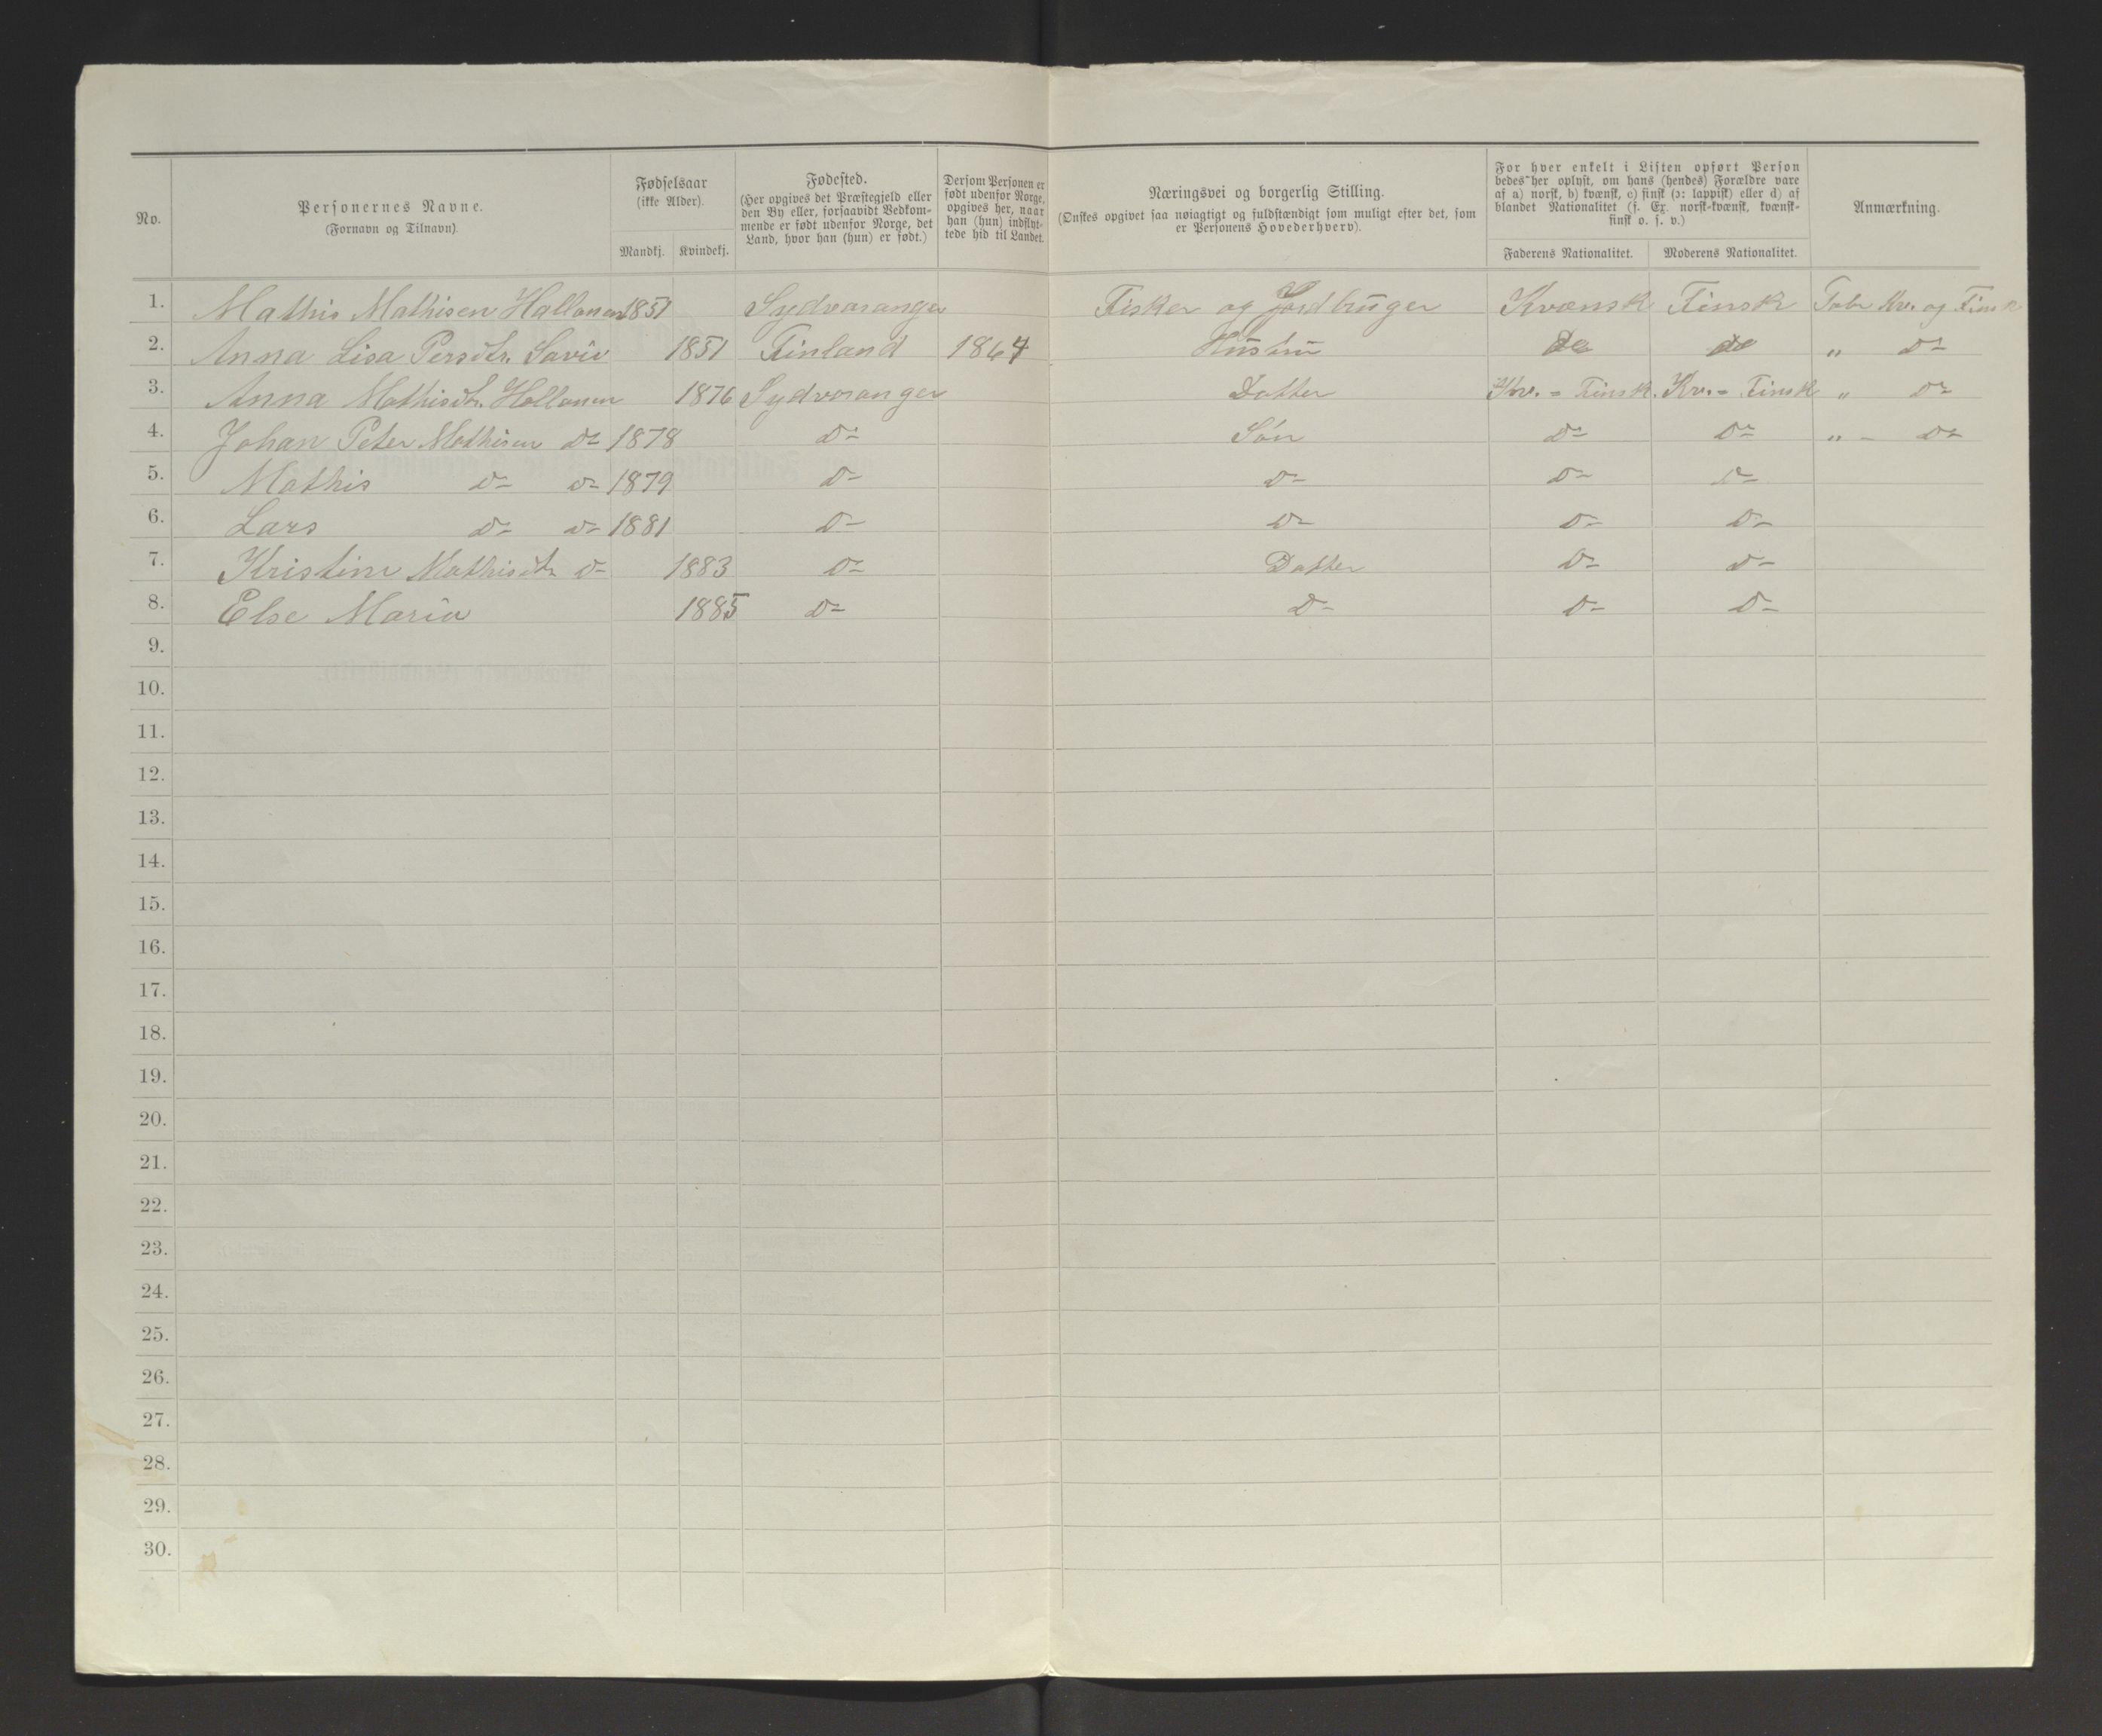 No.
Personernes Navne.
(Fornavn og Tilnavn).
Fødselsaar
(ikke Alder).
Mandkj. Kvindekj.
Fødested.
(Her opgives det Præstegjeld eller
den By eller, forsaavidt Vedkom-
mende er født udenfor Norge, det
Land, hvor han (hun) er født.)
Dersom Personen er
født udenfor Norge,
opgives her, naar
han (hun) indflyt-
tede hid til Landet.
Næringsvei og borgerlig Stilling.
(Ønskes opgivet saa nøiagtigt og fuldstændigt som muligt efter det, som
er Personens Hovederhverv).
For hver enkelt i Listen opført Person
bedes her oplyst, om hans (hendes) Forældre vare
af a) norsk, b) kvænsk, c) finsk (ɔ: lappisk) eller d) af
blandet Nationalitet (f. Ex. norsk-kvænsk, kvænsk-
finsk o. s. v.)
Faderens Nationalitet. Moderens Nationalitet.
Anmærkning.
1. Mathis Mathisen Hallonen 1851 Sydvaranger Fisker og Jordbruger Kvænsk Finsk Taler Kv. og Finsk
2. Anna Lisa Persdtr. Savio 1851 Finland 1864 Hustru do do " Do
3. Anna Mathisdtr. Hallonen 1876 Sydvaranger Datter Kv. = Finsk. Kv. = Finsk " Do
4. Johan Peter Mathisen do 1878 Do Søn Do Do " - Do
5. Mathis do do 1879 Do Do Do Do
6. Lars do do 1881 Do Do Do Do
7. Kristine Mathisdtr do 1883 Do Datter Do Do
8. Else Maria 1885 Do Do Do Do
9.
10.
11.
12.
13.
14.
15.
16.
17.
18.
19.
20.
21.
22.
23.
24.
25.
26.
27.
28.
29.
30.